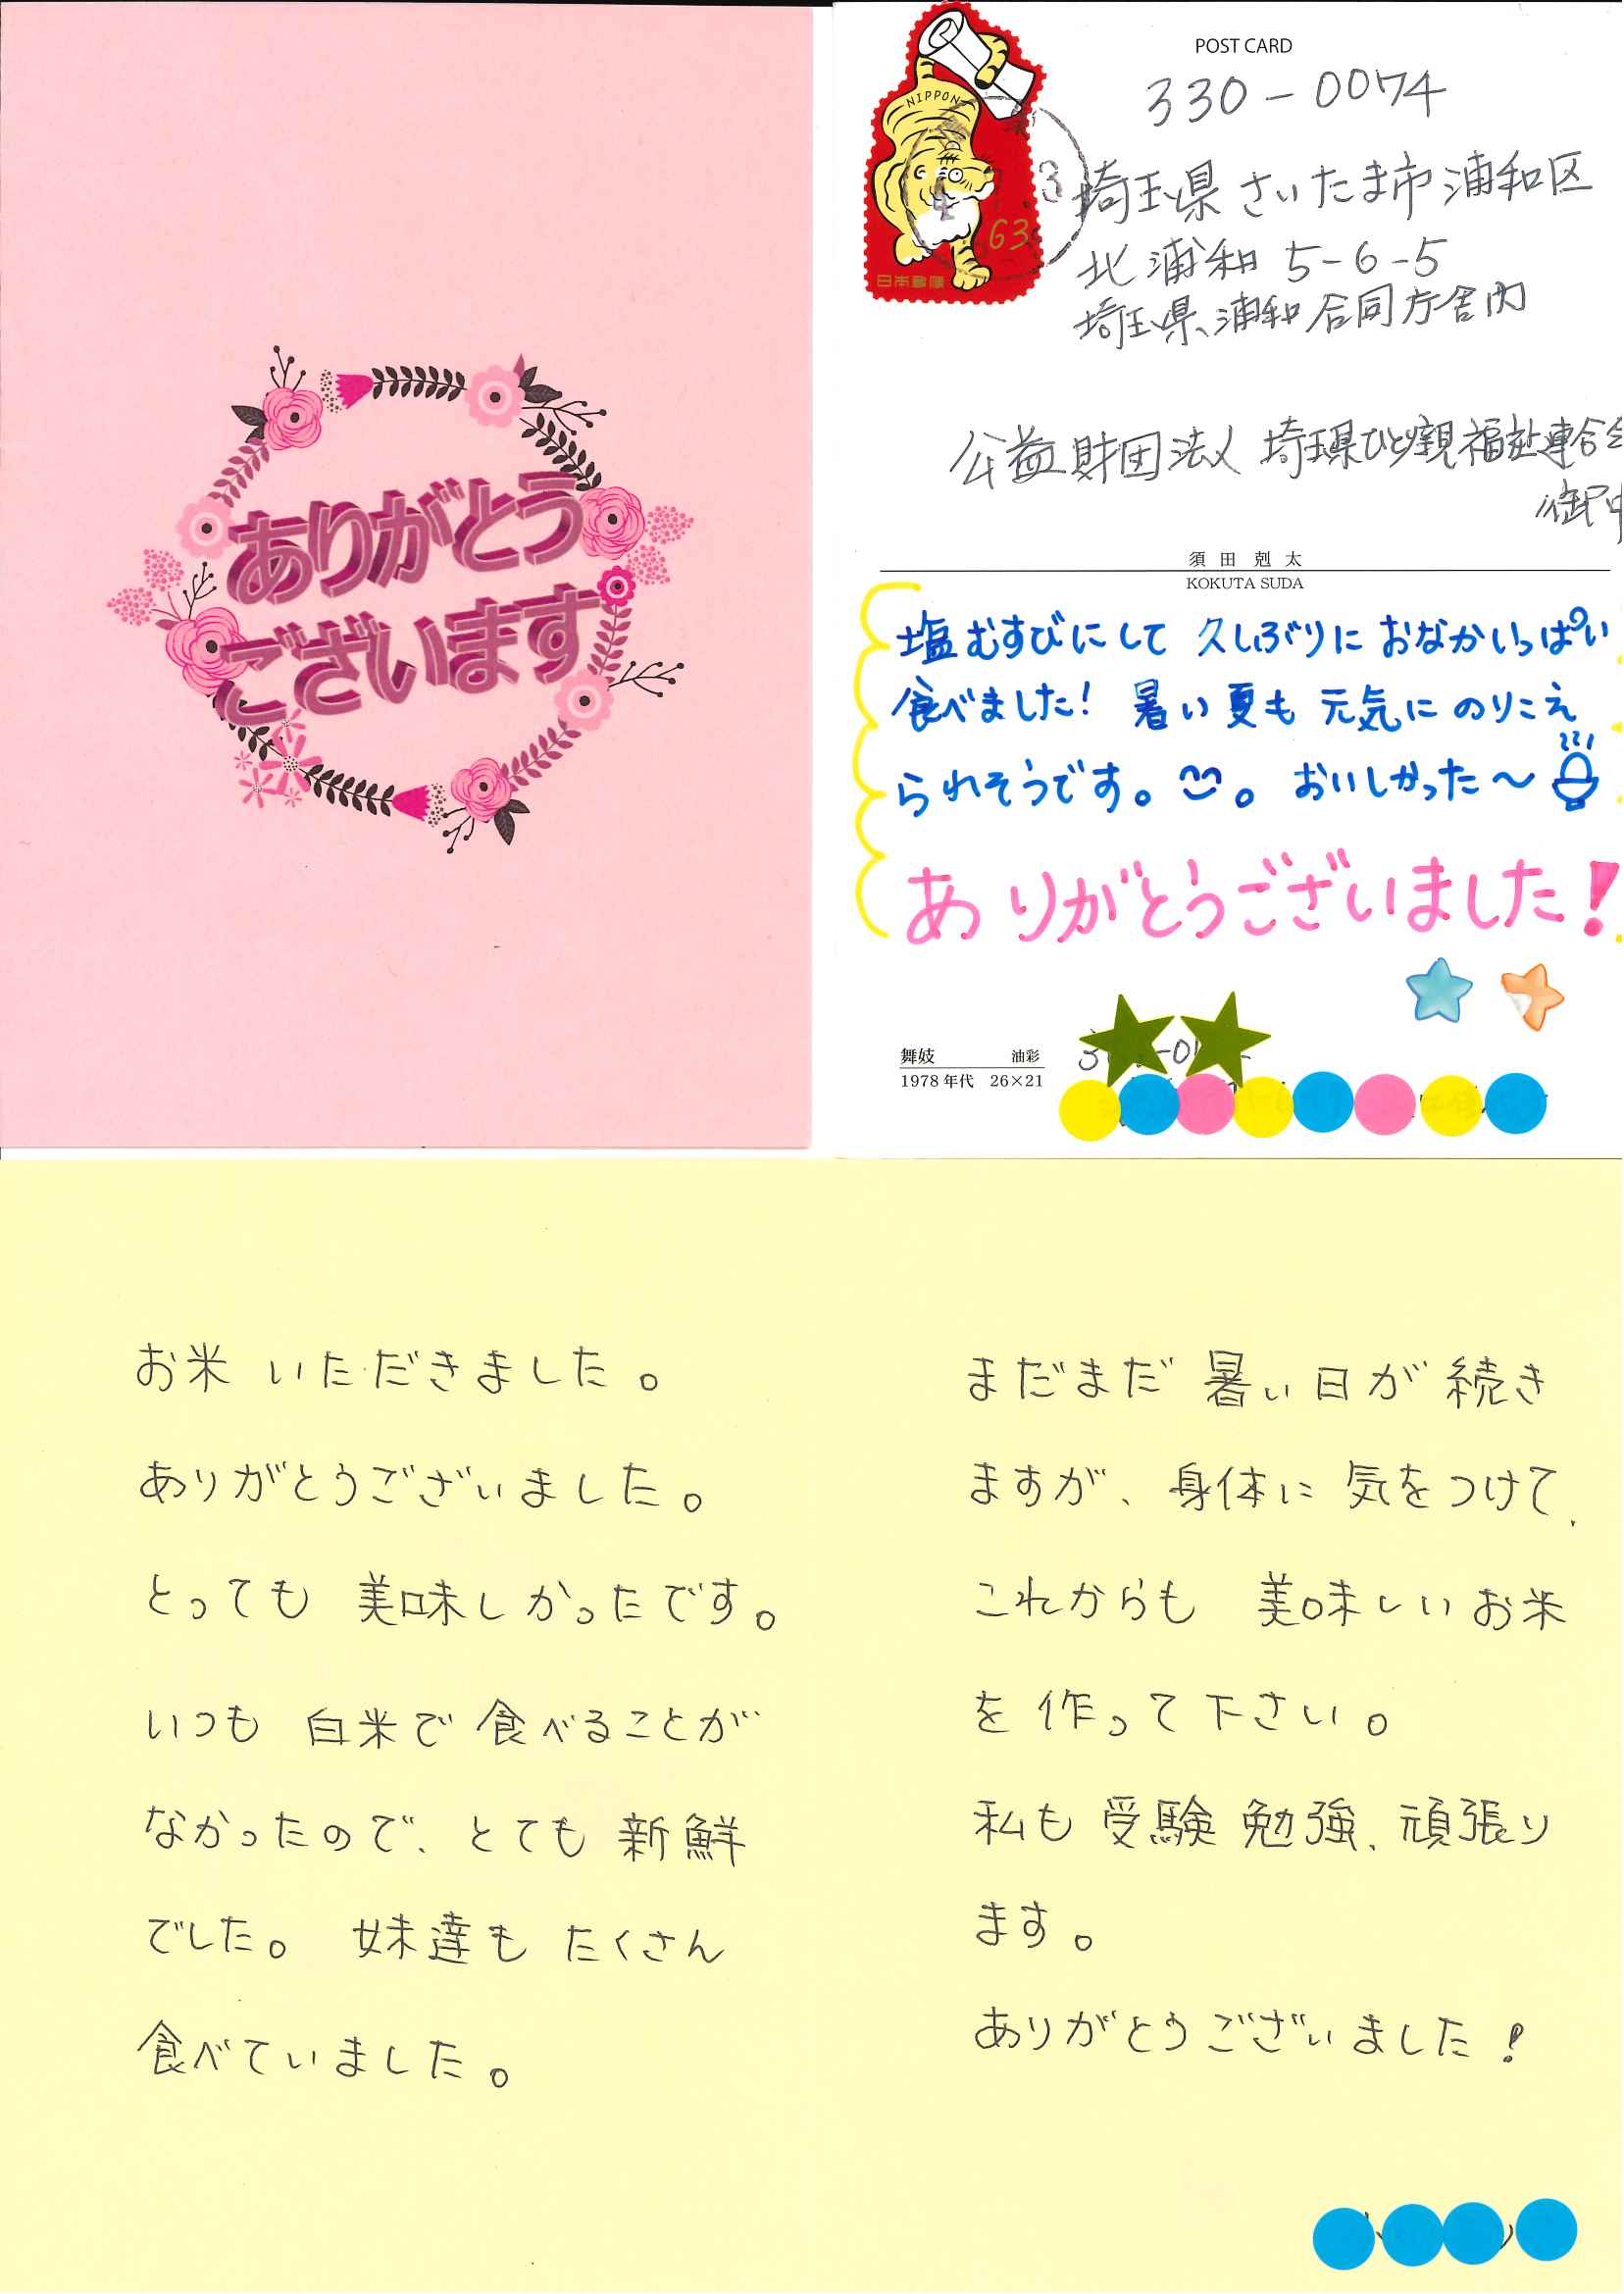 ありがとう
ございます
NIPPON
63
日本郵便
3
POST CARD
330-0074
埼玉県さいたま市浦和区
北浦和5-6-5
埼玉県浦和合同庁舎内
公益財団法人 埼玉県ひとり親福祉連合会
御中
須田剋太
KOKUTA SUDA
塩むすびにして 久しぶりに おなかいっぱい
食べました! 暑い夏も 元気に のりこえ
られそうです。。おいしかった〜
ありがとうございました!
舞妓 油彩
1978年代 26×21
お米 いただきました。
ありがとうございました。
とっても 美味しかったです。
いつも 白米で 食べることが
なかったので、とても 新鮮
でした。 妹達も たくさん
食べていました。
まだまだ 暑い日が 続き
ますが、身体に 気をつけて、
これからも 美味しいお米
を 作って下さい。
私も 受験 勉強、頑張り
ます。
ありがとうございました!